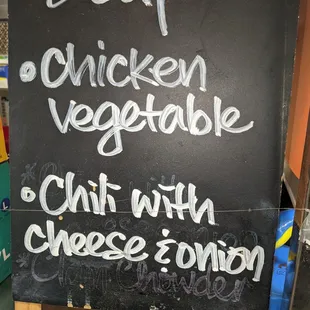 • Chicken
vegetable
• Chili with
cheese & onion
Clam Chowder